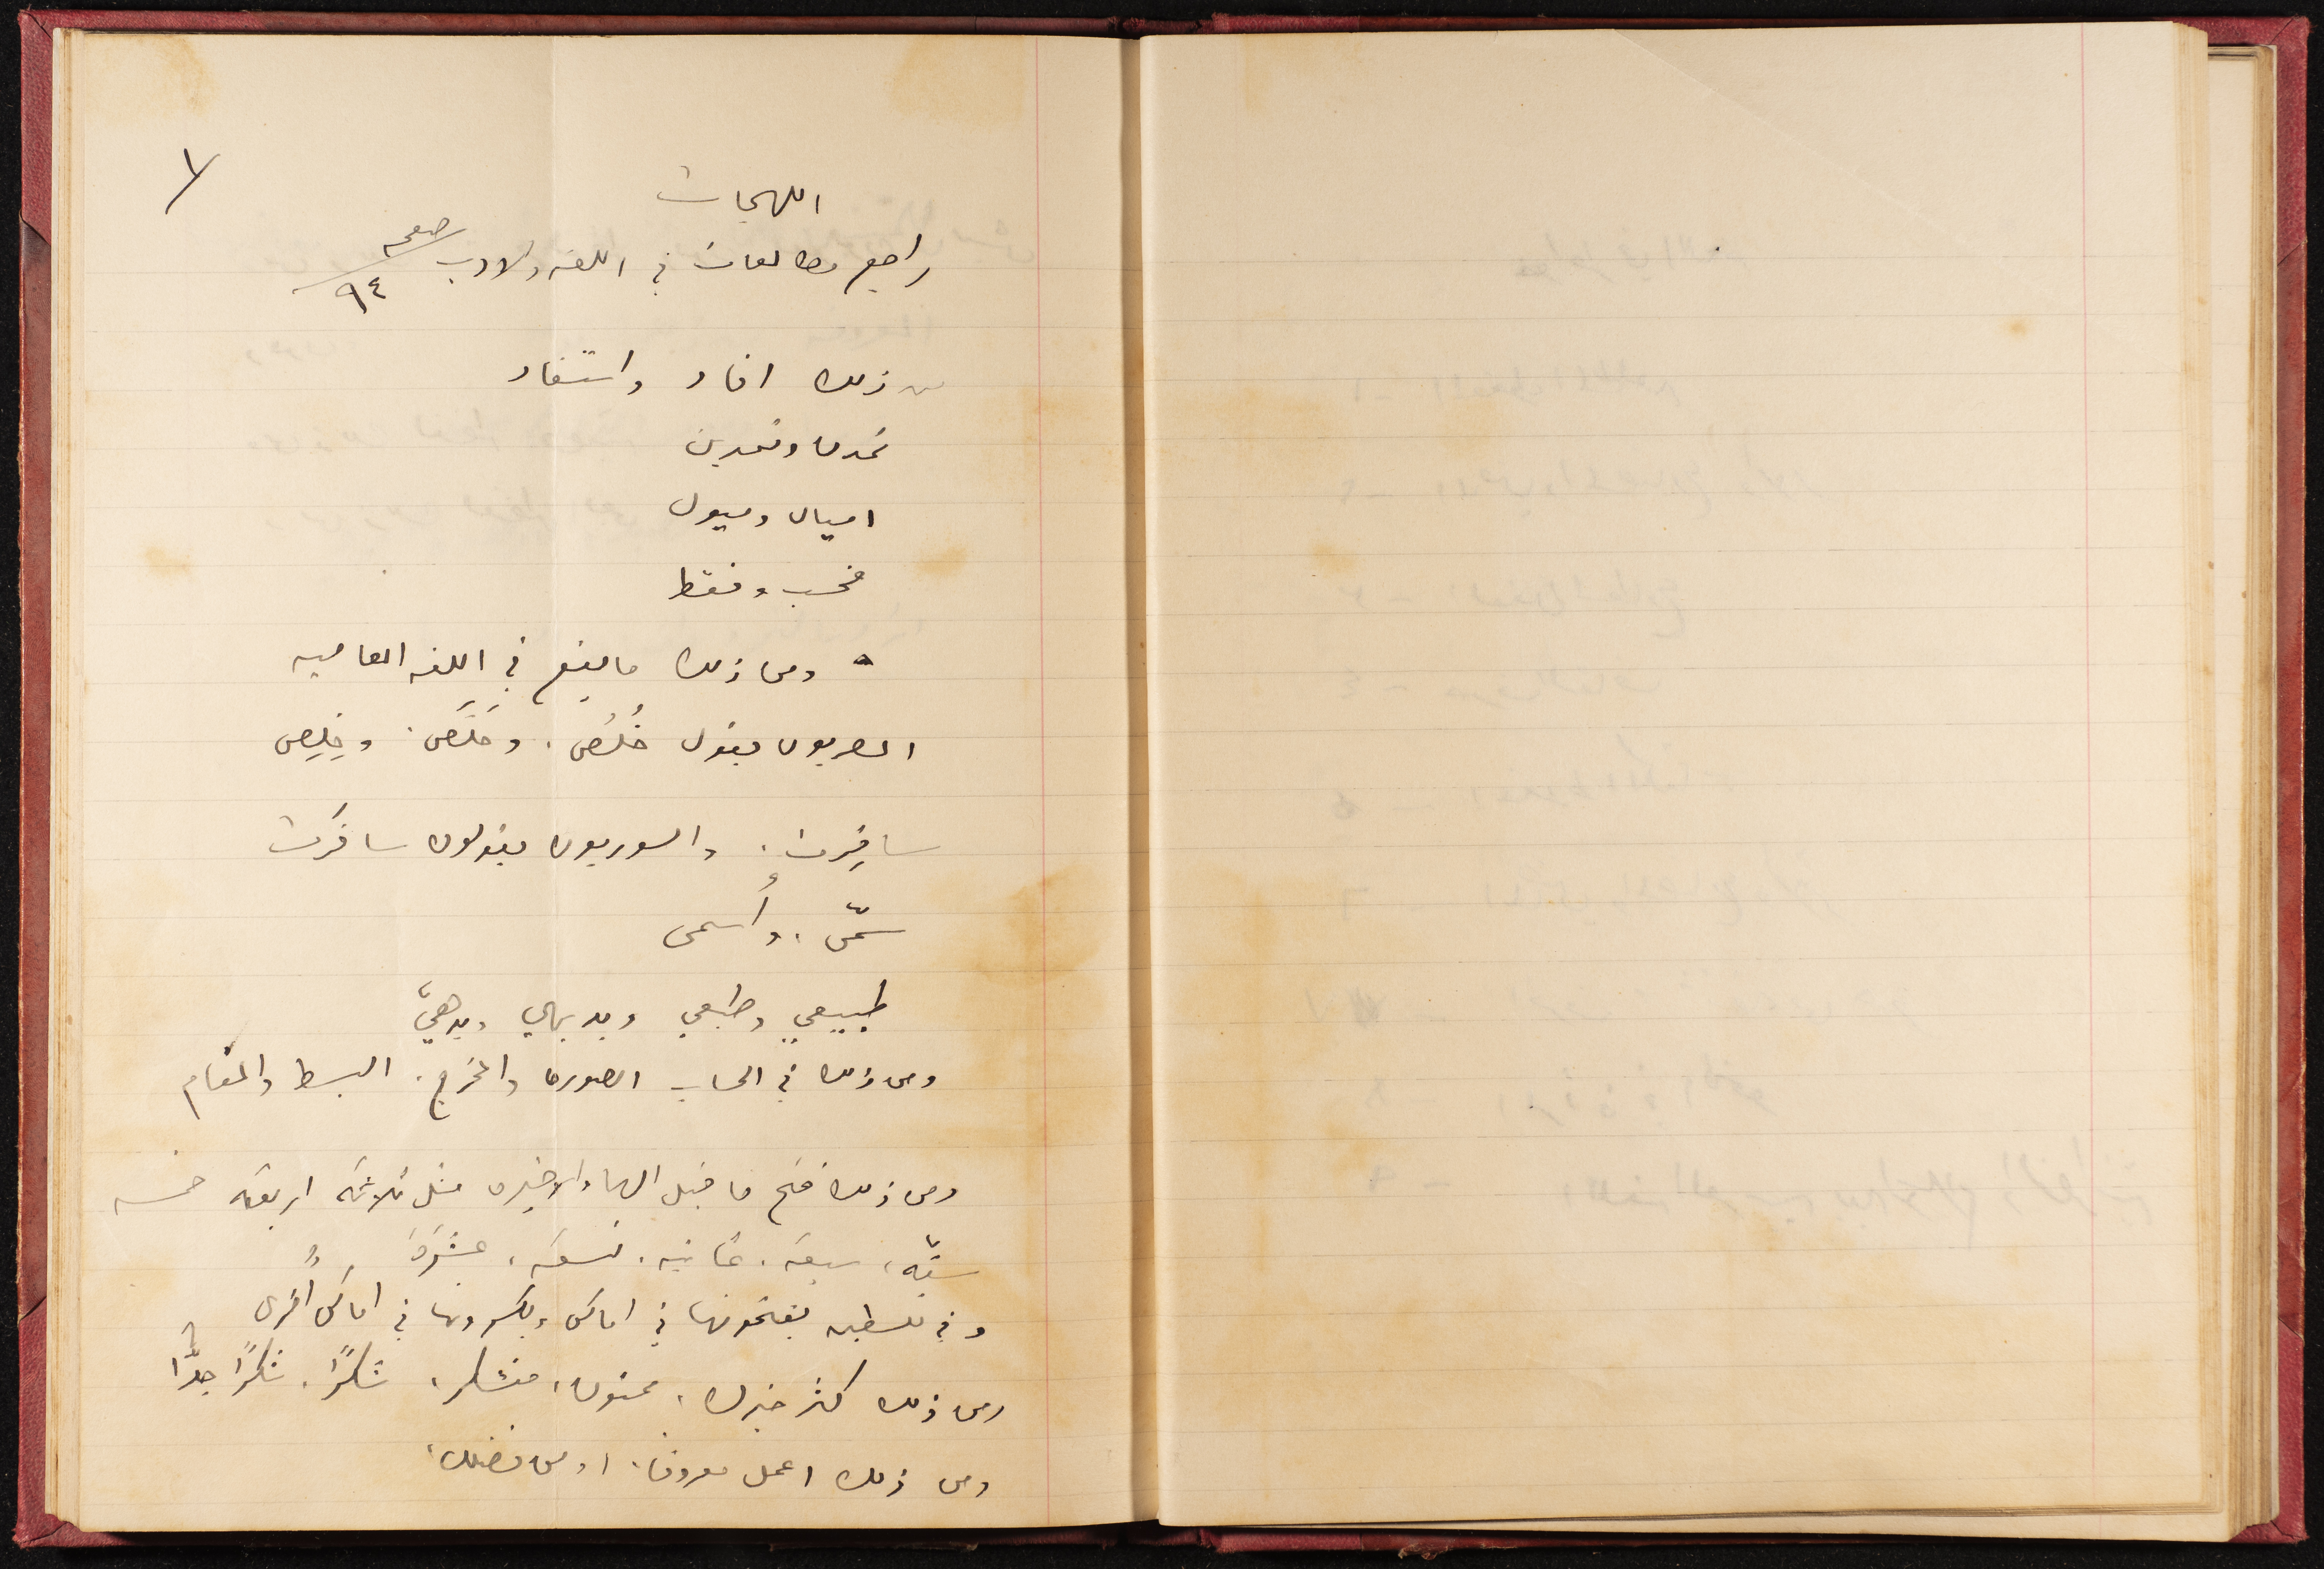 ١
اللهجات
راجع مطالعات في اللغه والادب صفحه ٩٤
من ذلك افاد واستفاد
تمدن وتمدين
اميال وميول
فحسب وفقط
ومن ذلك ما يقع في اللغه العاميه
المصريون يقول خُلُص. وخَلَص. وخِلِص
سافِرت. والسوريون يقولون سافَرت
سمّى. وأسمى
طبيعي وطبعي وبديهي وبدهيّ
ومن ذلك في الحساب الصوره والمخرج. البسط والمقام
ومن ذلك فتح ما قبل الهاء الاخيره مثل ثلاثه اربعه خمسه
ستّه، سبعه. ثمانيه. تسعه، عشَرَه
وفي فلسطين يفتحونها في اماكن ويكسرونها في اماكن أُخرى
ومن ذلك كثر خيرك، ممنون، متشكر، شكرًا. شكرًا جدًّا
ومن ذلك اعمل معروف. او من فضلك،